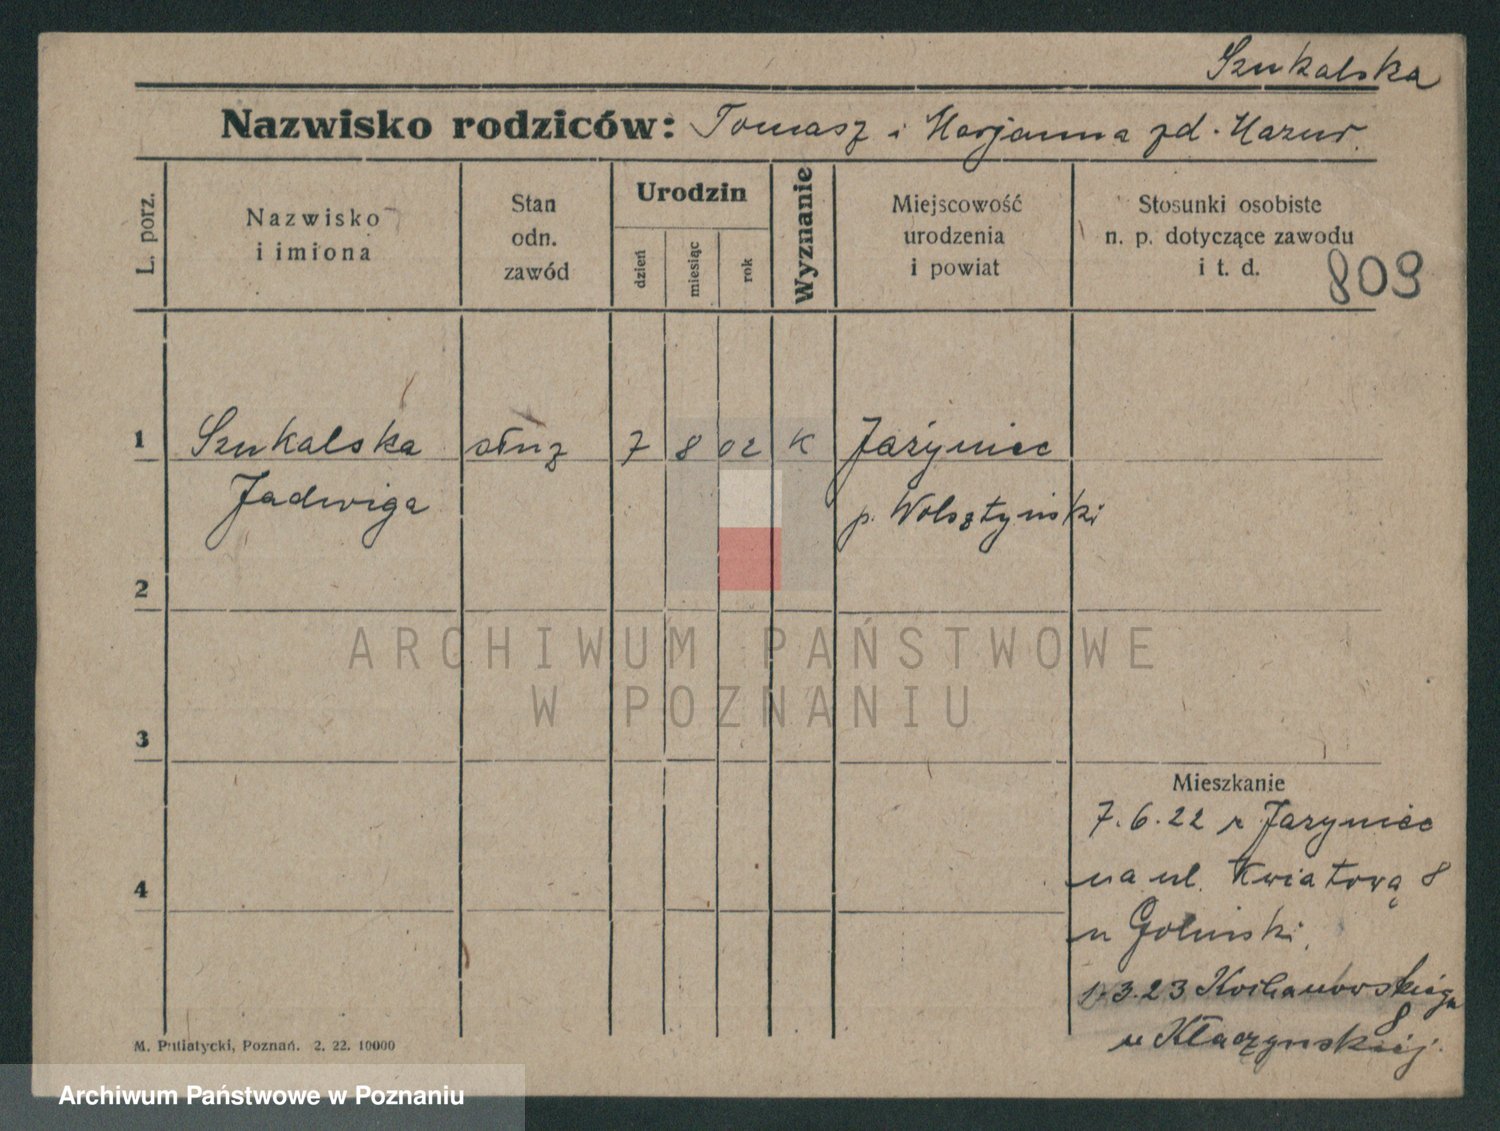 Szukalska
Nazwisko rodziców: Tomasz i Marjanna zd. Mazur.
L. porz.
Nazwisko
i imiona
Stan
odn.
zawód
Urodzin
dzień
miesiąc
rok
Wyznanie
Miejscowość
urodzenia
i powiat
Stosunki osobiste
n. p. dotyczące zawodu
i t. d.
809
1
Szukalska
Jadwiga
służ
7
8
02
K
Jażyniec
p. Wolsztyński
2
3
4
Mieszkanie
7.6.22 z Jazyniec
na ul. Kwiatową 8
u Goliński,
1.3.23 Kochanowskiego
8
u Kłaczyńskiej.
M. Putiatycki, Poznań. 2. 22. 10000
ARCHIWUM PAŃSTWOWE
W POZNANIU
Archiwum Państwowe w Poznaniu